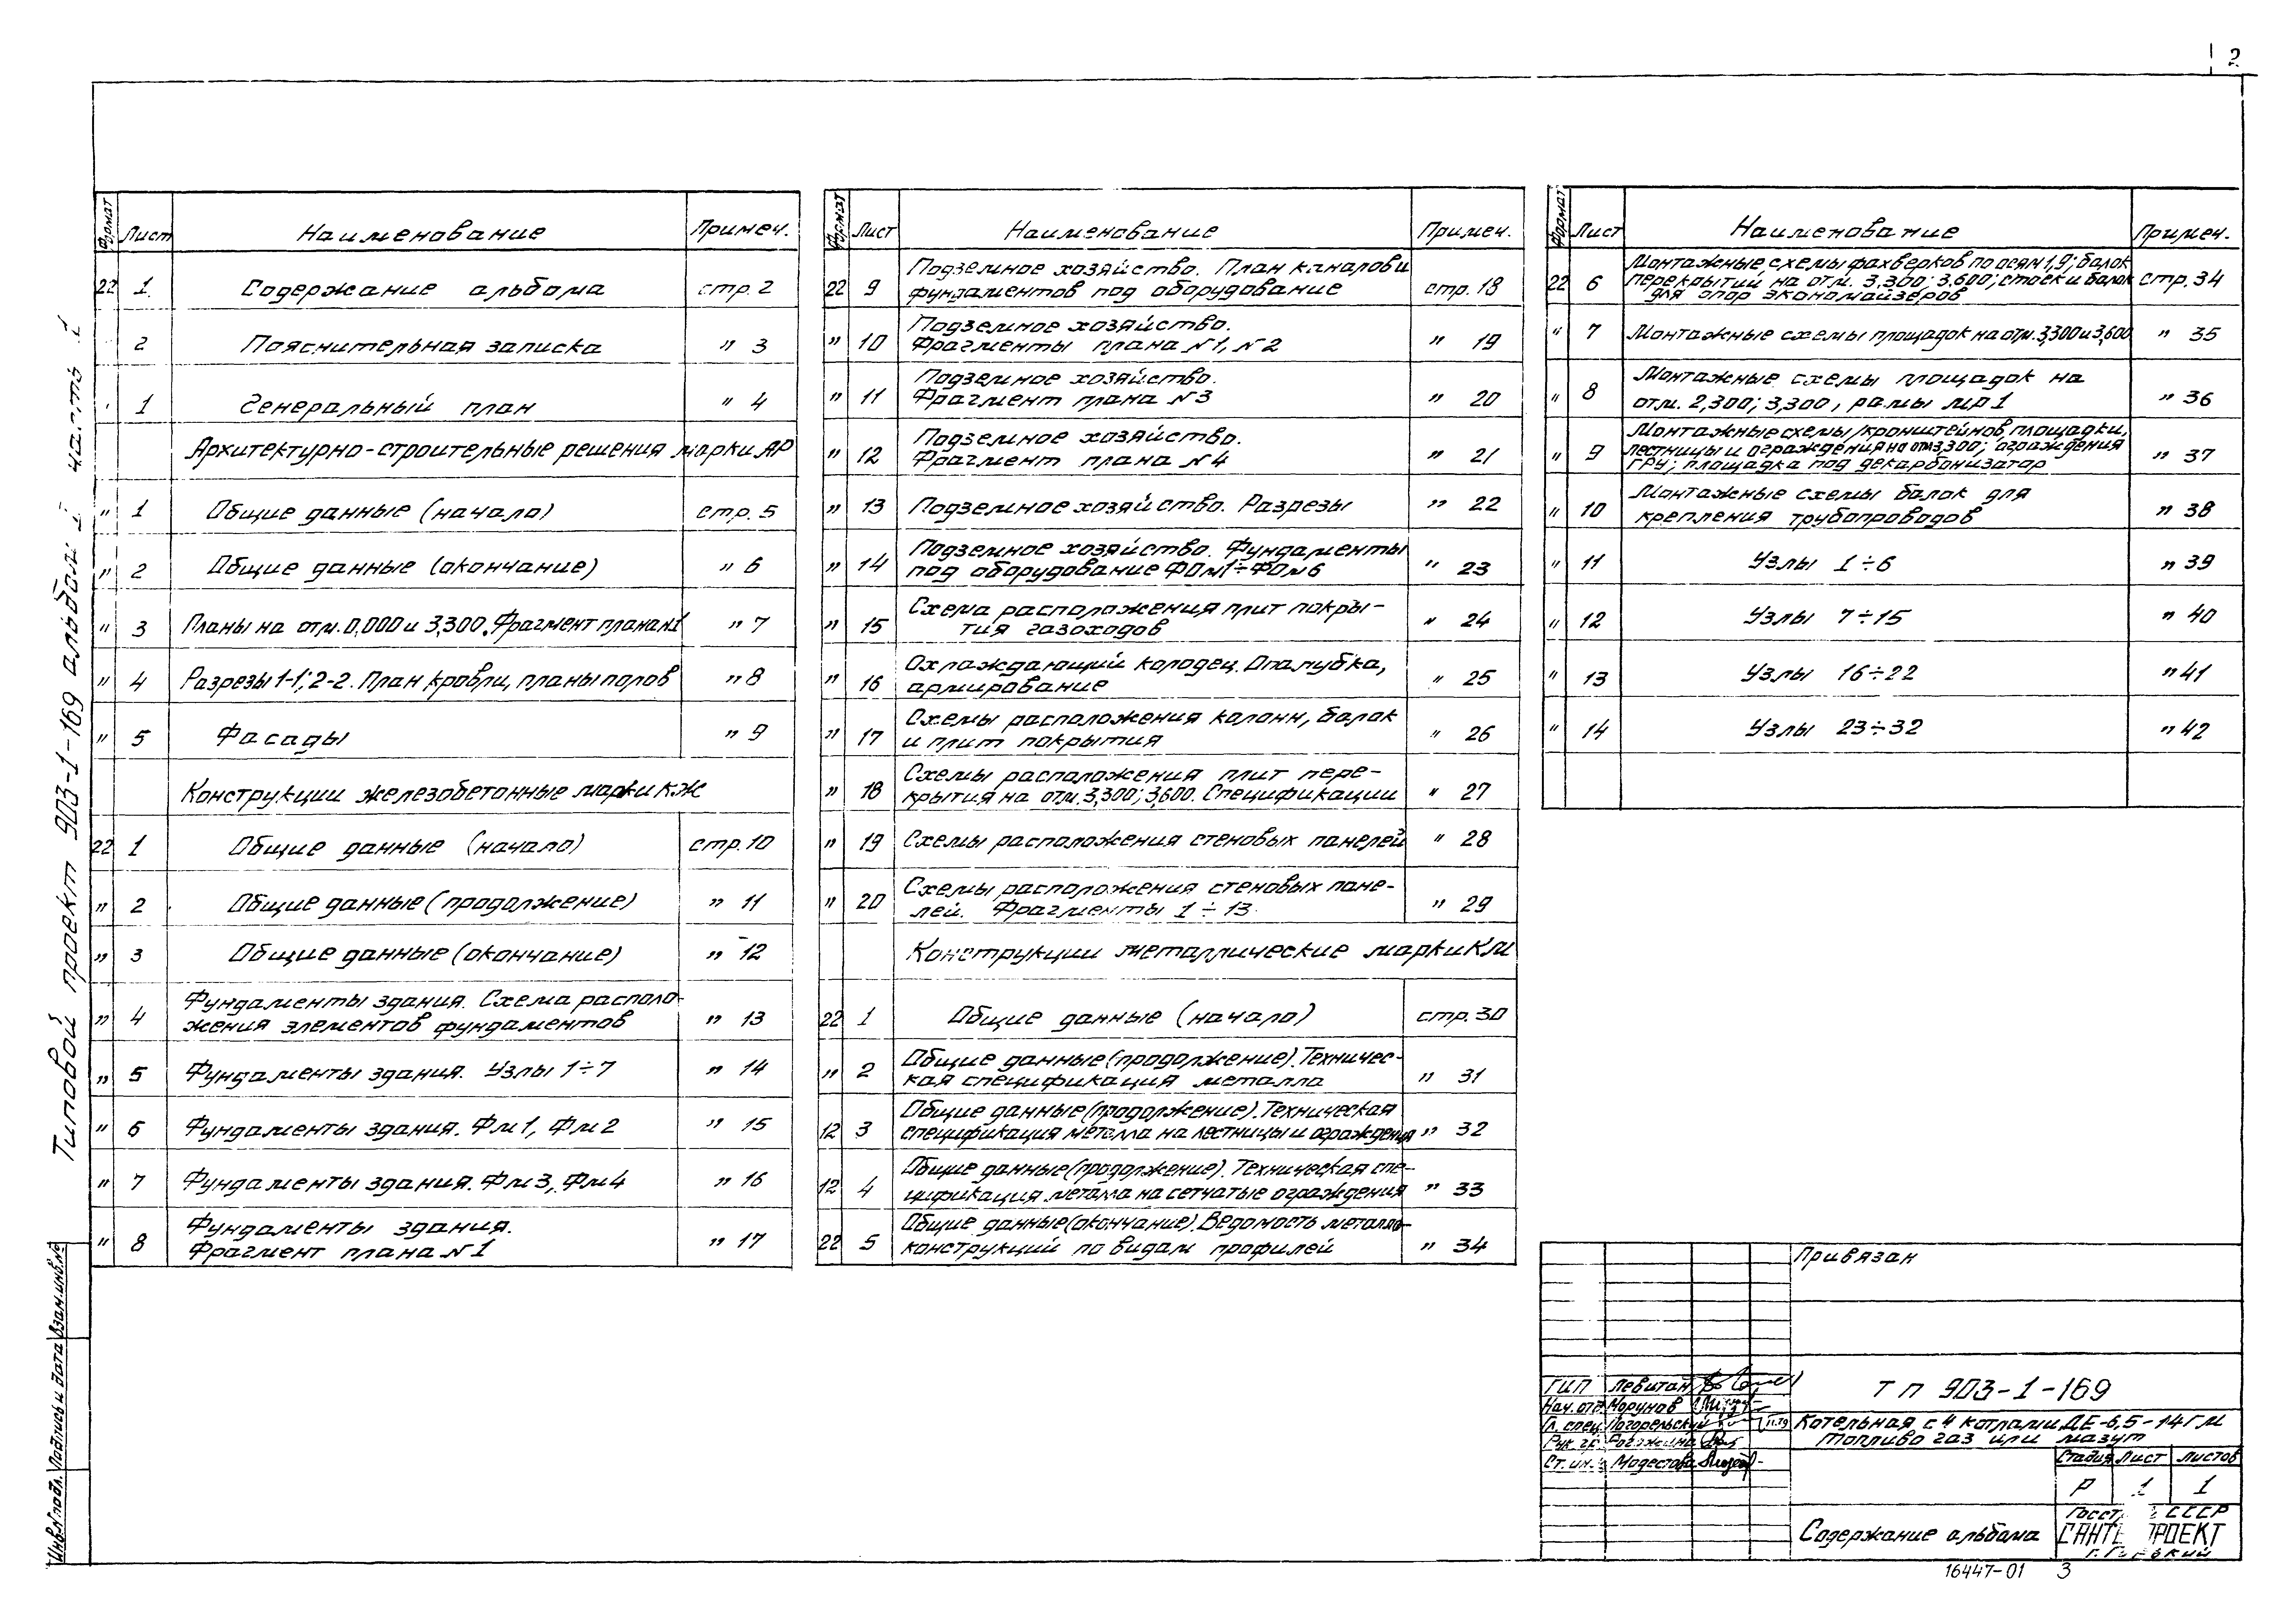 2
Типовой проект 903-1-169 альбом I часть 1
Формат Лист Наименование Примеч.
22 1 Содержание альбома стр. 2
2 Пояснительная записка " 3
1 Генеральный план " 4
Архитектурно-строительные решения марки АР
" 1 Общие данные (начало) стр. 5
" 2 Общие данные (окончание) " 6
" 3 Планы на отм. 0,000 и 3,300. Фрагмент плана №1 " 7
" 4 Разрезы 1-1; 2-2. План кровли, планы полов " 8
" 5 Фасады " 9
Конструкции железобетонные марки КЖ
22 1 Общие данные (начало) стр. 10
" 2 Общие данные (продолжение) " 11
" 3 Общие данные (окончание) " 12
Фундаменты здания. Схема располо-
" 4 жения элементов фундаментов " 13
" 5 Фундаменты здания. Узлы 1÷7 " 14
" 6 Фундаменты здания. Фм1, Фм2 " 15
" 7 Фундаменты здания. Фм3, Фм4 " 16
Фундаменты здания.
" 8 Фрагмент плана №1 " 17
Формат Лист Наименование Примеч.
Подземное хозяйство. План каналов и
22 9 фундаментов под оборудование стр. 18
Подземное хозяйство.
" 10 Фрагменты плана №1, №2 " 19
Подземное хозяйство.
" 11 Фрагмент плана №3 " 20
Подземное хозяйство.
" 12 Фрагмент плана №4 " 21
" 13 Подземное хозяйство. Разрезы " 22
Подземное хозяйство. Фундаменты
" 14 под оборудование ФОм1÷ФОм6 " 23
Схема расположения плит покры-
" 15 тия газоходов " 24
Охлаждающий колодец. Опалубка,
" 16 армирование " 25
Схемы расположения колонн, балок
" 17 и плит покрытия " 26
Схемы расположения плит пере-
" 18 крытия на отм. 3,300; 3,600. Спецификации " 27
" 19 Схемы расположения стеновых панелей " 28
Схемы расположения стеновых пане-
" 20 лей. Фрагменты 1÷13 " 29
Конструкции металлические марки КМ
22 1 Общие данные (начало) стр. 30
Общие данные (продолжение). Техничес-
" 2 кая спецификация металла " 31
Общие данные (продолжение). Техническая
12 3 спецификация металла на лестницы и ограждения " 32
Общие данные (продолжение). Техническая спе-
12 4 цификация металла на сетчатые ограждения " 33
Общие данные (окончание). Ведомость металло-
22 5 конструкций по видам профилей " 34
Формат Лист Наименование Примеч.
Монтажные схемы фахверков по осям 1,9; балок
22 6 перекрытий на отм. 3,300; 3,600; стоек и балок стр. 34
для опор экономайзеров
" 7 Монтажные схемы площадок на отм. 3,300 и 3,600 " 35
Монтажные схемы площадок на
" 8 отм. 2,300; 3,300, рамы МР1 " 36
Монтажные схемы кронштейнов, площадки,
" 9 лестницы и ограждения на отм 3,300; ограждения " 37
ГРУ; площадка под декарбонизатор
Монтажные схемы балок для
" 10 крепления трубопроводов " 38
" 11 Узлы 1÷6 " 39
" 12 Узлы 7÷15 " 40
" 13 Узлы 16÷22 " 41
" 14 Узлы 23÷32 " 42
Привязан
ГИП Левитан
Нач. отд. Морунов
Гл. спец. Погорельский
Рук. гр.
Ст. ин. Модестова
ТП 903-1-169
Котельная с 4 котлами ДЕ-6,5-14ГМ
Топливо газ или мазут
Стадия Лист Листов
Р 1 1
СССР
Содержание альбома
16447-01 3
Инв.№ подл. Подпись и дата Взам.инв.№